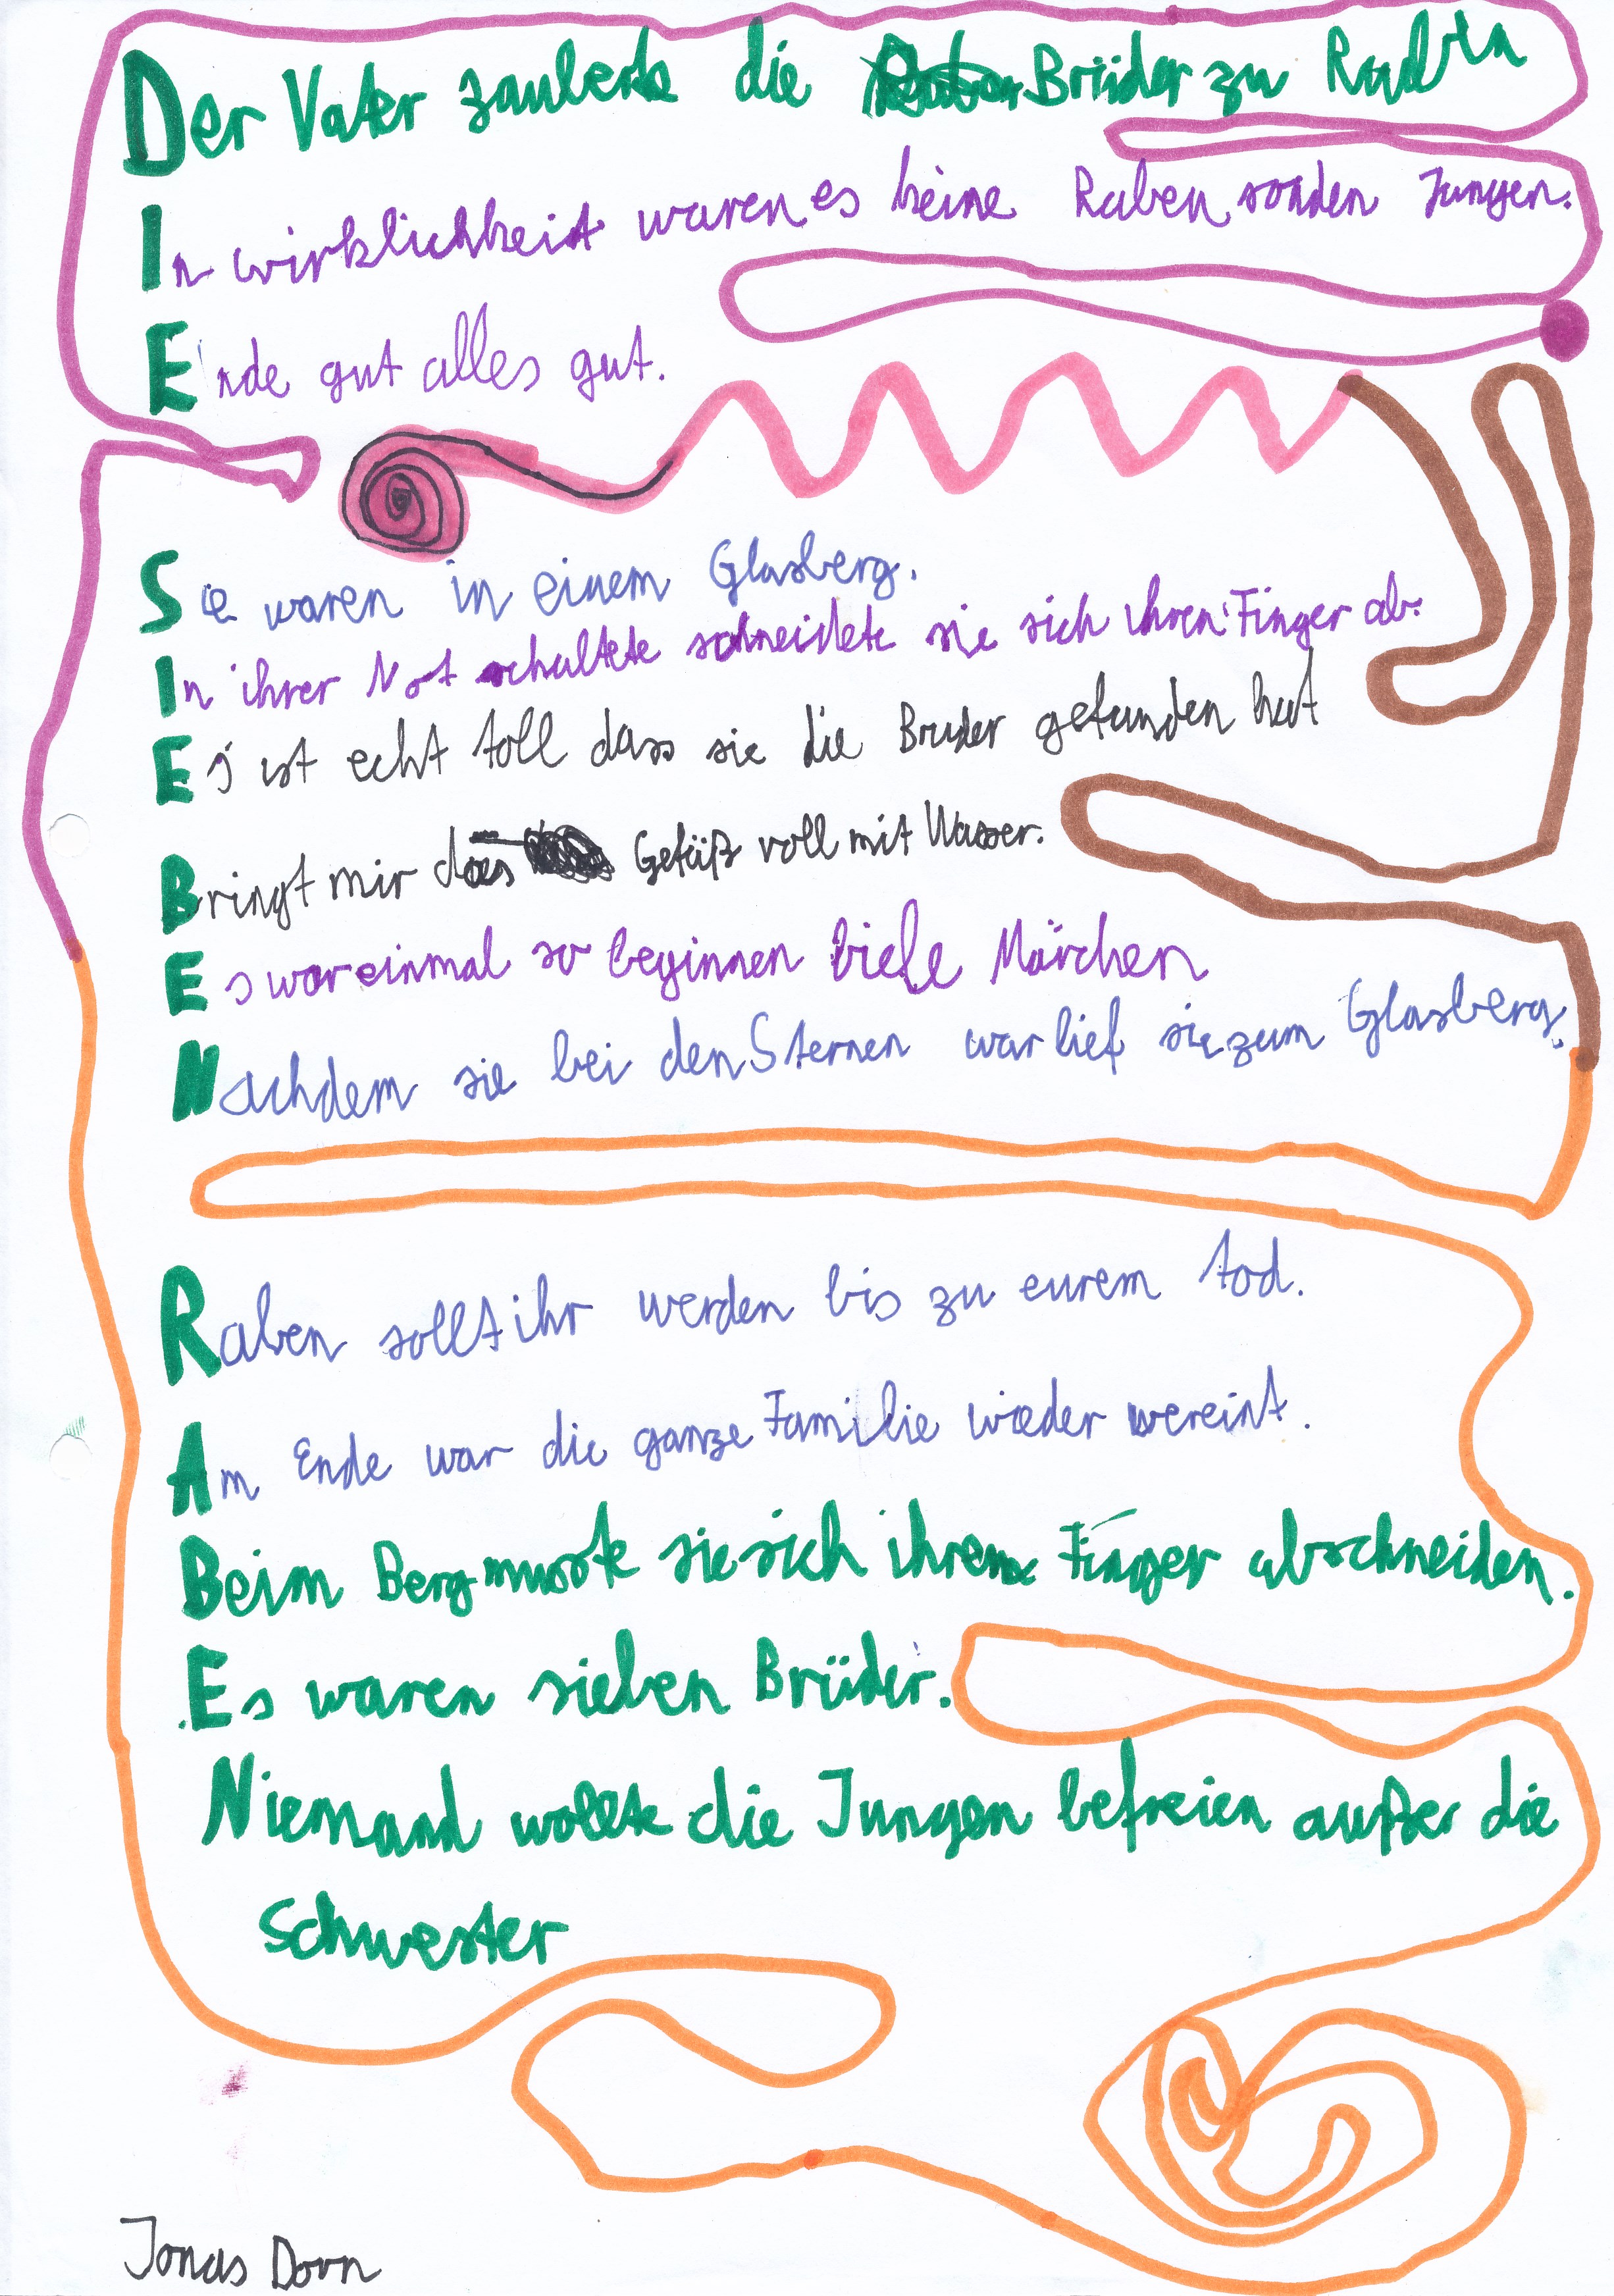 Der Vater zauberte die Brüder zu
In wirklichkeit waren es keine Raben sonden Jungen.
Ende gut alles gut.
Sie waren in einem Glasberg.
In ihrer Not schneidete sie sich ihren Finger ab.
Es ist echt toll dass sie die Bruder gefunden hat
Bringt mir das Gefäß voll mit Wasser.
Es war einmal so beginnen viele Märchen
Nachdem sie bei den Sternen war lief sie zum Glasberg.
Raben sollt ihr werden bis zu eurem tod.
Am Ende war die ganze Familie wieder vereint.
Beim Berg musste sie sich ihren Finger abschneiden.
Es waren sieben Brüder.
Niemand wollte die Jungen befreien außer die
Schwester
Jonas Dorn